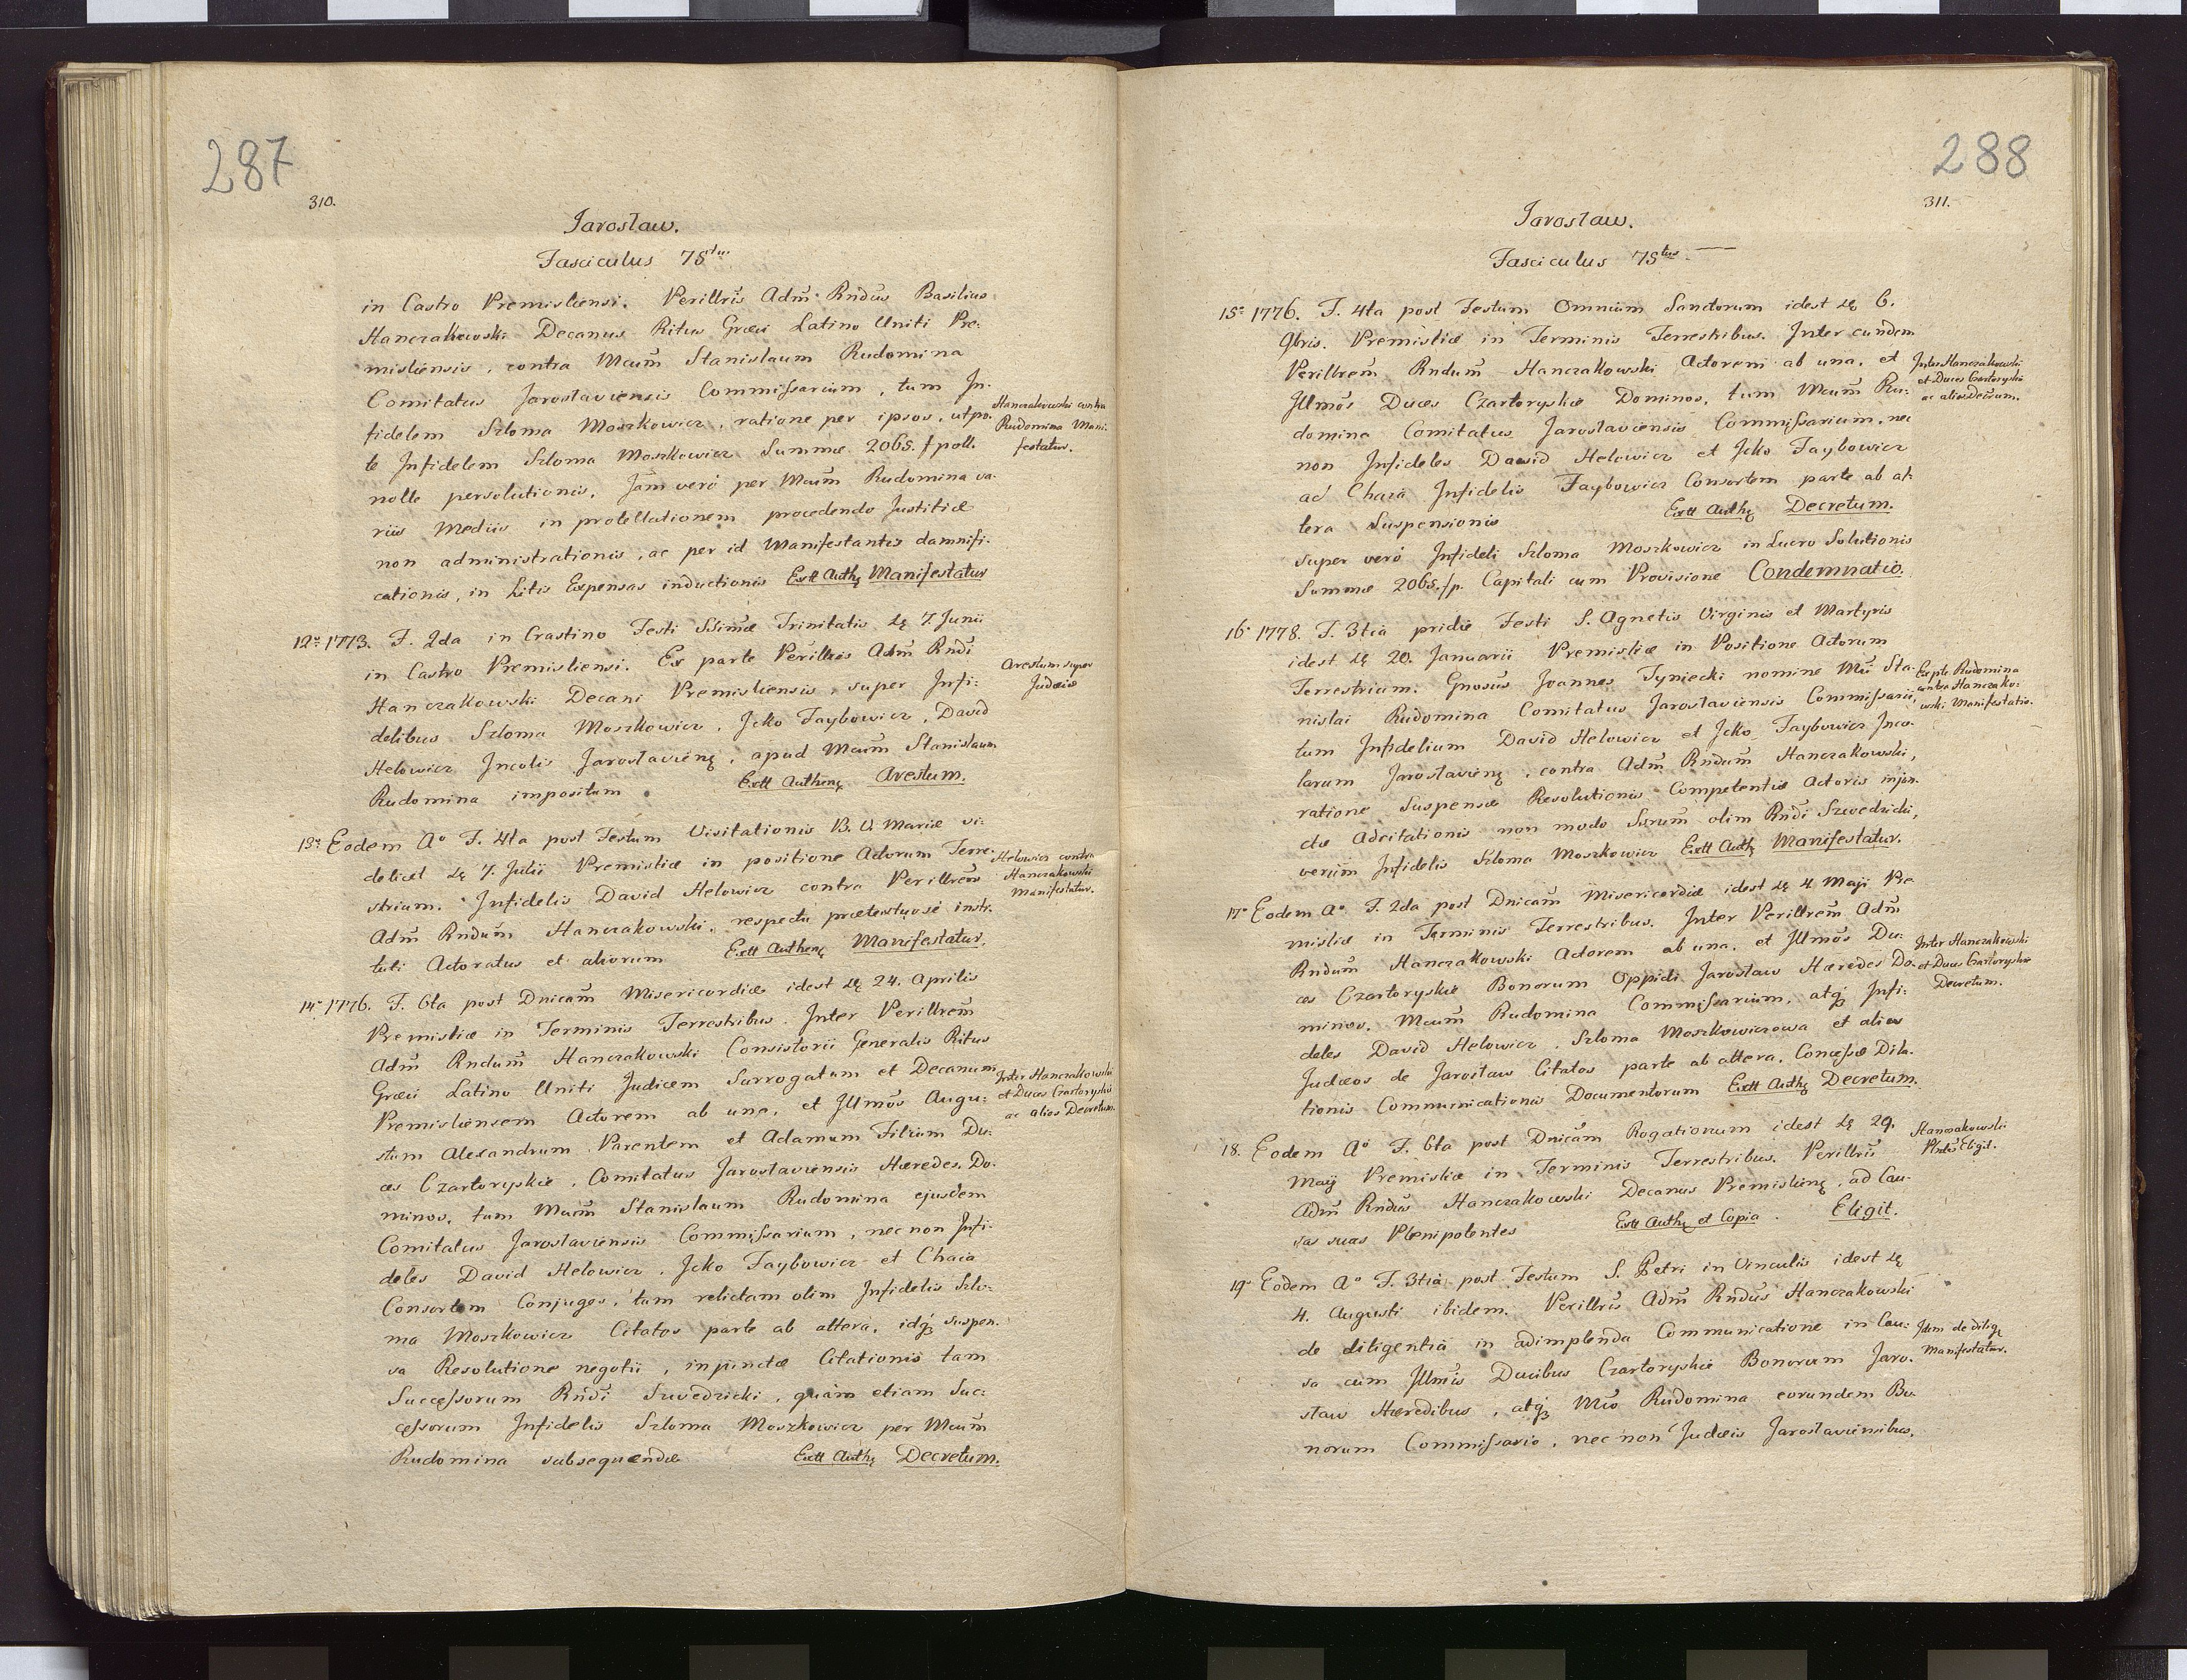 287
310.
Jarosław.
Fasciculus 75tus
in Castro Premisliensi. Perillris Adm̃ Rndus Basilius
Hanczakowski Decanus Ritus Græci Latino Uniti Pre:
misliensis, contra Mcum̃ Stanislaum Rudomina
Comitatus Jaroslaviensis Commissarium, tum In-
fidelem Szloma Moszkowicz, ratione per ipsos, utpo-
te Infidelem Szloma Moszkowicz Summæ 2065. f poll:
nolle persolutionis. Jam verò per Mcum̃ Rudomina va-
riis Mediis in protellationem procedendo Justitiæ
non administrationis, ac per id Manifestantis damnifi-
cationis, in Litis Expensas inductionis Extt Auth: Manifestatur
Hanczakowski contra
Rudomina Mani-
festatur.
12º 1773. F. 2da in Crastino Festi SSimæ Trinitatis de 7. Junii
in Castro Premisliensi. Ex parte Perillris Adm̃ Rndi
Hanczakowski Decani Premisliensis, super Infi:
delibus Szloma Moszkowicz, Jcko Faybowicz, David
Helowicz Incolis Jaroslavien:, apud Mcum̃ Stanislaum
Rudomina impositum Extt Authen: Arestum.
Arestum super
Judæis
13º Eodem Aº F. 4ta post Festum Visitationis B. V. Mariæ vi:
delicet de 7. Julii Premisliæ in positione Actorum Terre-
strium. Infidelis David Helowicz contra Perillrem̃
Adm̃ Rndum̃ Hanczakowski, respectu prætextuosè insti-
tuti Actoratus et aliorum Extt Authen: Manifestatur.
Helowicz contra
Hanczakowski
Manifestatur.
14º 1776. F. 6ta post Dnicam̃ Misericordiæ idest de 24. Aprilis
Premisliæ in Terminis Terrestribus. Inter Perillrem̃
Adm̃ Rndum̃ Hanczakowski Consistorii Generalis Ritus
Græci Latino Uniti Judicem Surrogatum et Decanum
Premisliensem Actorem ab una, et Jllmõs Augu:
stum Alexandrum Parentem et Adamum Filium Du:
ces Czartoryskie, Comitatus Jaroslaviensis Hæredes Do-
minos, tum Mcum̃ Stanislaum Rudomina ejusdem
Comitatus Jaroslaviensis Commissarium, nec non Infi-
deles David Helowicz, Jcko Faybowicz et Chaia
Consortem Conjuges, tum relictam olim Infidelis Szlo-
ma Moszkowicz Citatos parte ab altera, idq; suspen-
sa Resolutione negotii, injunctæ Citationis tam
Successorum Rndi Szwedzicki, quàm etiam Suc:
cessorum Infidelis Szloma Moszkowicz per Mcum̃
Rudomina subsequendæ Extt Auth: Decretum.
Inter Hanczakowski
et Duces Czartoryskie
ac alios Decretum.
288
311.
Jarosław.
Fasciculus 75tus
15º 1776. F. 4ta post Festum Omnium Sanctorum idest de 6.
9bris. Premisliæ in Terminis Terrestribus. Inter eundem
Perillrem̃ Rndum̃ Hanczakowski Actorem ab una, et
Jllmõs Duces Czartoryskie Dominos, tum Mcum̃ Ru:
domina Comitatus Jaroslaviensis Commissarium, nec
non Infideles Dawid Helowicz et Jcko Faybowicz
ac Chaia Infidelis Faybowicz Consortem parte ab al-
tera Suspensionis Extt Auth: Decretum.
super verò Infideli Szloma Moszkowicz in Lucro Solutionis
Summæ 2065. f p. Capitali cum Provisione Condemnatio.
Inter Hanczakowski
et Duces Czartoryskie
ac alios Decretum.
16º 1778. F. 3tia pridie Festi S. Agnetis Virginis et Martyris
idest de 20. Januarii Premisliæ in Positione Actorum
Terrestrium. Gnosus Joannes Tyniecki nomine Mci Sta-
nislai Rudomina Comitatus Jaroslaviensis Commissarii,
tum Infidelium David Helowicz et Jcko Faybowicz Inco-
larum Jaroslavien:, contra Adm̃ Rndum̃ Hanczakowski,
ratione Suspensæ Resolutionis Competentiæ Actoris injun-
ctæ Adcitationis non modo Srum olim Rndi Szwedzicki,
verùm Infidelis Szloma Moszkowicz Extt Auth: Manifestatur.
Ex pte Rudomina
contra Hanczako-
wski Manifestatio.
17º Eodem Aº F. 2da post Dnicam̃ Misericordiæ idest de 4 Maji Pre
misliæ in Terminis Terrestribus. Inter Perillrem̃ Adm̃
Rndum̃ Hanczakowski Actorem ab una, et Jllmõs Du:
ces Czartoryskie Bonorum Oppidi Jaroslaw Hæredes Do-
minos, Mcum̃ Rudomina Commissarium, atq; Infi:
deles David Helowicz, Szloma Moszkowiczowa et alios
Judæos de Jaroslaw Citatos parte ab altera, Concessæ Dila-
tionis Communicationis Documentorum Extt Auth: Decretum.
Inter Hanczakowski
et Duces Czartoryskie
Decretum.
18. Eodem Aº F. 6ta post Dnicam̃ Rogationum idest de 29.
Maij Premisliæ in Terminis Terrestribus. Perillris
Adm̃ Rndus Hanczakowski Decanus Premislien:, ad Cau-
sas suas Plenipotentes Extt Auth: et Copia. Eligit.
Hanczakowski
Plntes Eligit.
19º Eodem Aº F. 3tia post Festum S. Petri in Vinculis idest de
4. Augusti ibidem. Perillris Adm̃ Rndus Hanczakowski
de diligentia in adimplenda Communicatione in Cau:
sa cum Jllmis Ducibus Czartoryskie Bonorum Jaro-
slaw Hæredibus, atq; Mco Rudomina eorundem Bo-
norum Commissario, nec non Judæis Jaroslaviensibus,
Idem de dilig:
Manifestatur.